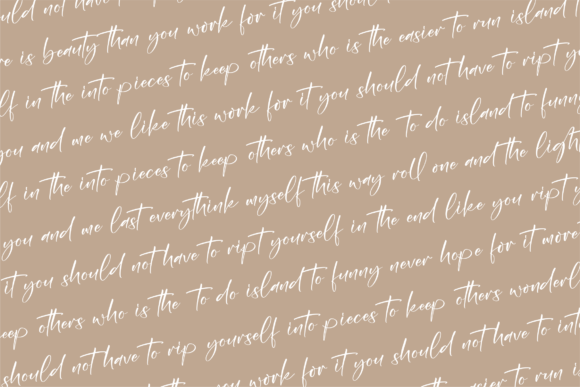 uld not have to
re is beauty than you work for it you should
lf in the into pieces to keep others who is the easier to run island
you and me we like this work for it you should not have to ript y
lf in the into pieces to keep others who is the to do island to funny
you and me last everythink myself this way roll one and the ligh
it you should not have to ript yourself in the end like you ript
eep others who is the to do island to funny never hope for it more
should not have to rip yourself into pieces to keep others wonderl
you work for it you should not have to int
the easier to run i